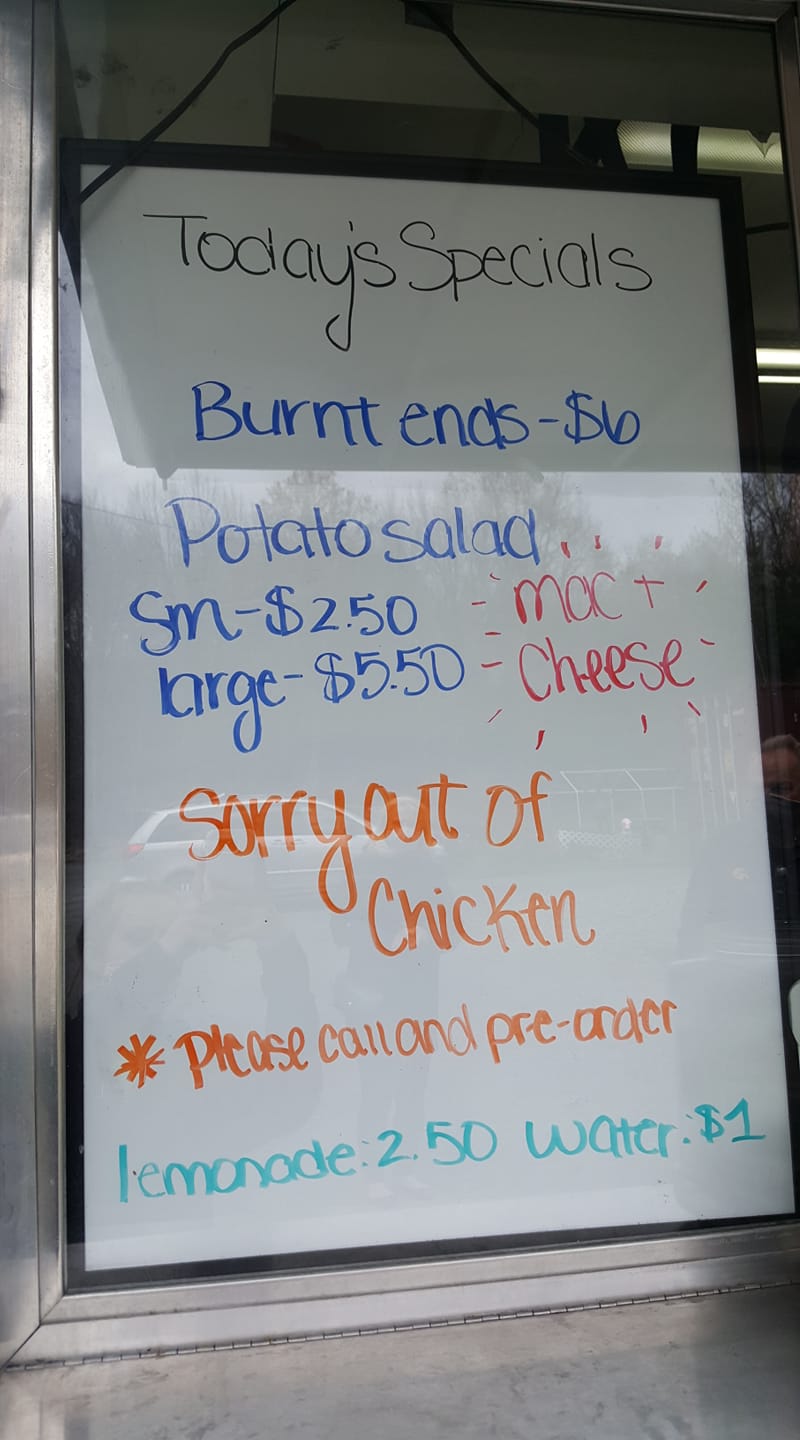 Today's Specials
Burnt ends - $6
Potato salad
Sm - $2.50
large - $5.50
mac +
cheese
Sorry out of
Chicken
* Please call and pre-order
lemonade: 2.50 water: $1